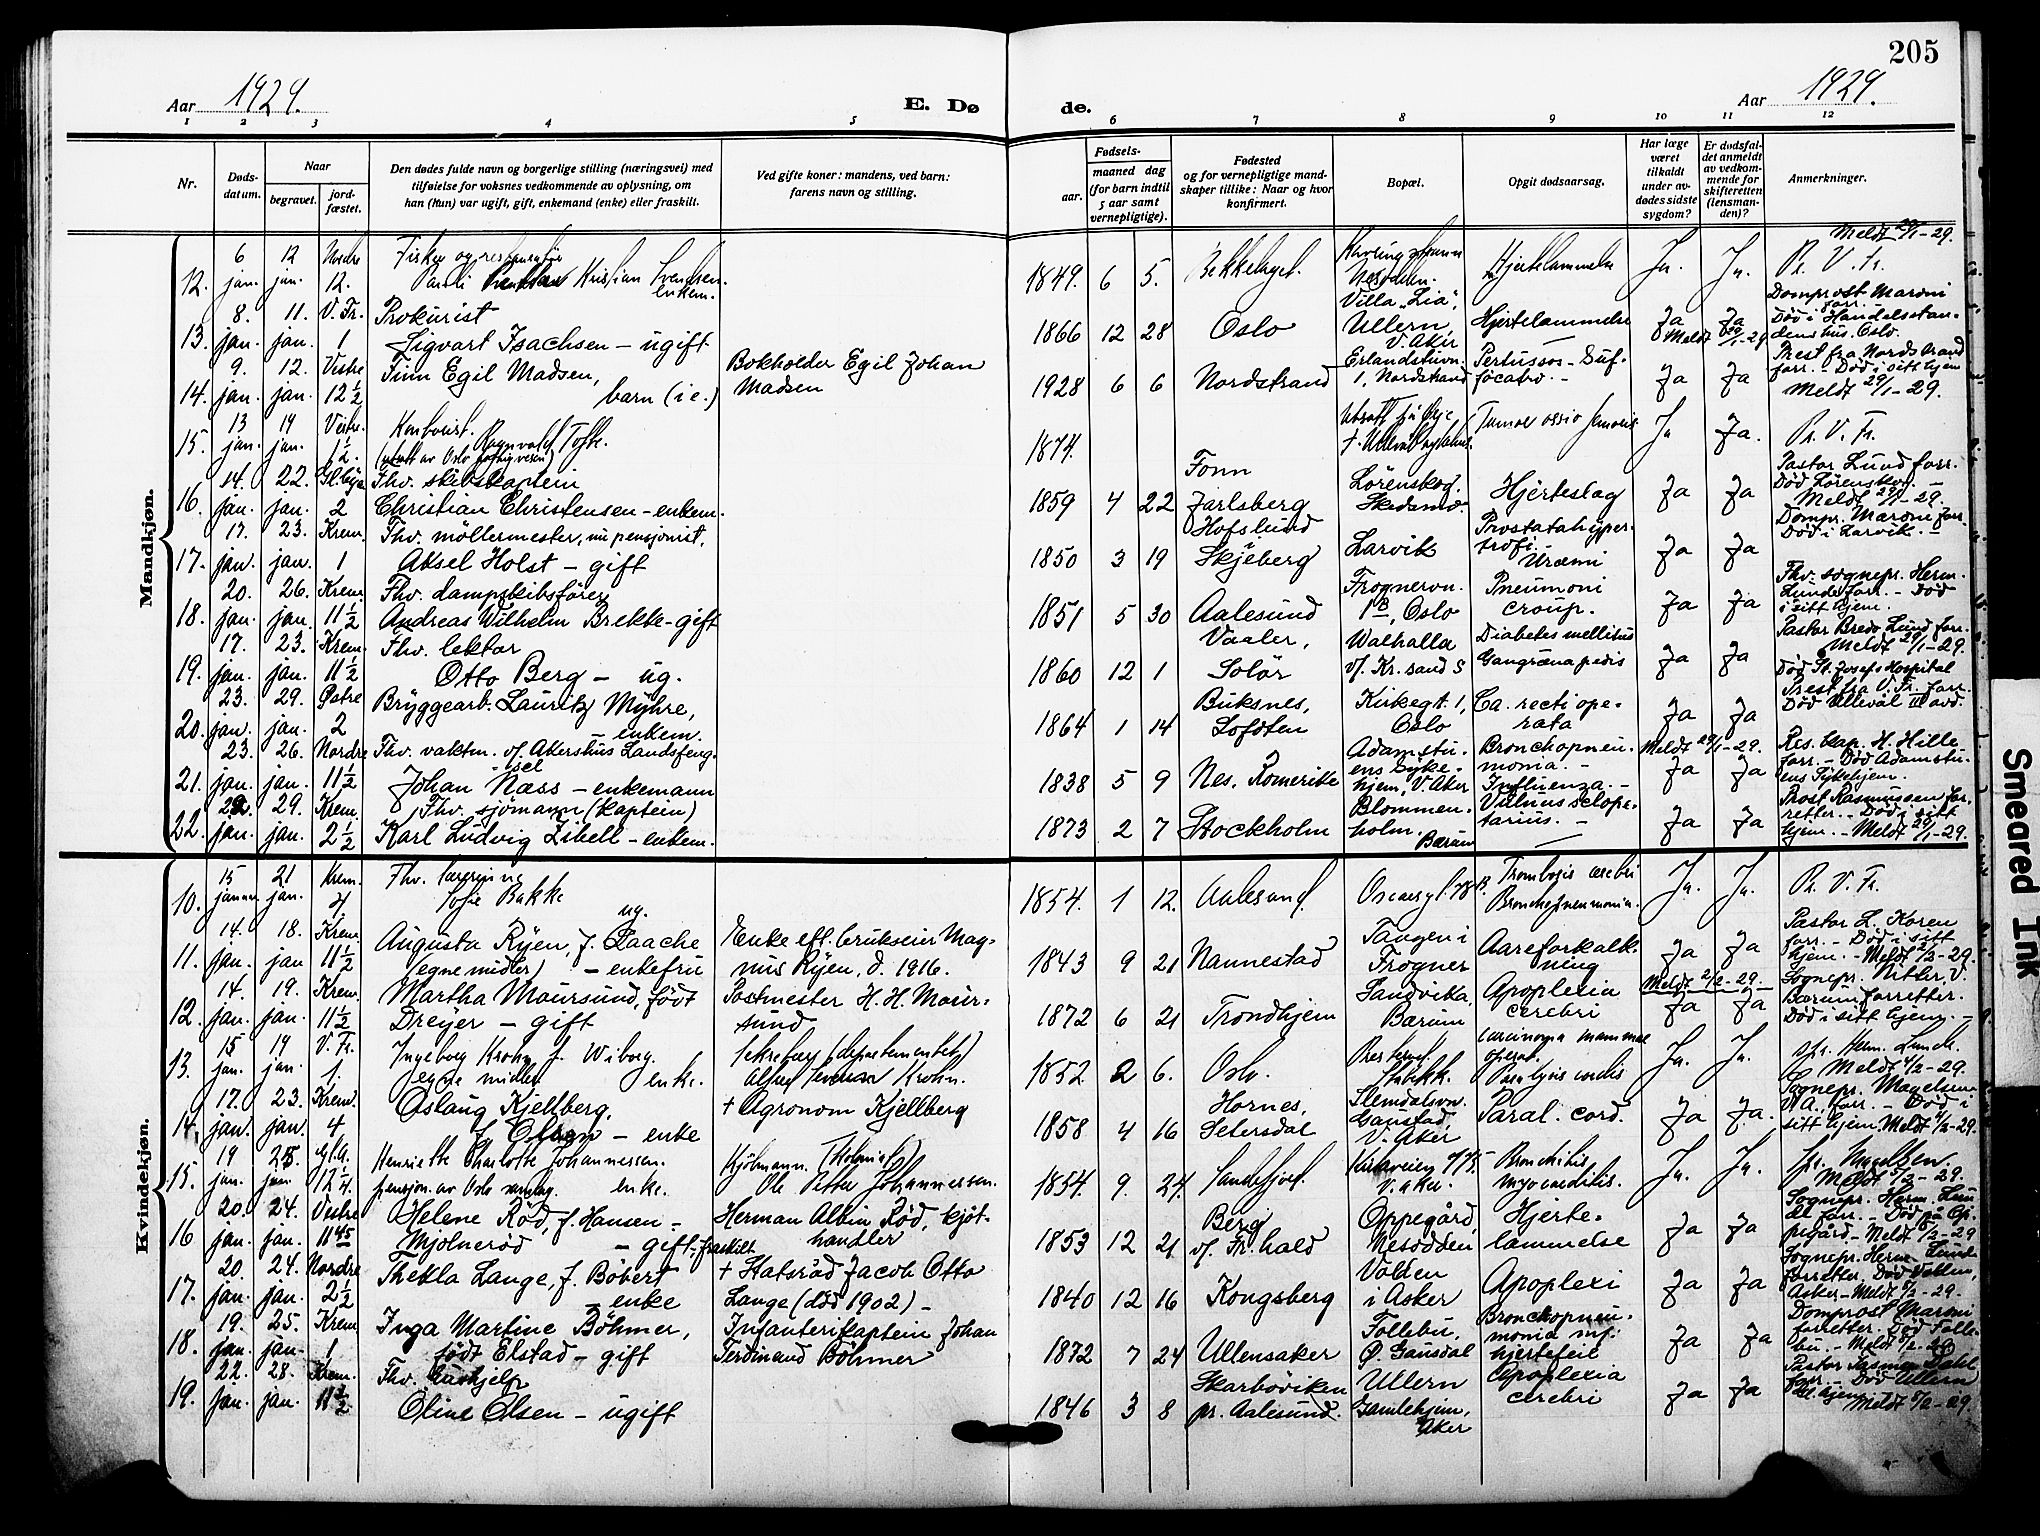 205
Aar 1929.
E. Dø de.
Aar 1929.
1 2 3 4 5 6 7 8 9 10 11 12
Nr.
Døds-
datum.
Naar
begravet.
jord-
fæstet.
Den dødes fulde navn og borgerlige stilling (næringsvei) med
tilføielse for voksnes vedkommende av oplysning, om
han (hun) var ugift, gift, enkemand (enke) eller fraskilt.
Ved gifte koner: mandens, ved barn:
farens navn og stilling.
Fødsels-
aar.
maaned dag
(for barn indtil
5 aar samt
vernepligtige).
Fødested
og for vernepligtige mand-
skaper tillike: Naar og hvor
konfirmert.
Bopæl.
Opgit dødsaarsag.
Har læge
været
tilkaldt
under av-
dødes sidste
sygdom?
Er dødsfal-
det anmeldt
av vedkom-
mende for
skifteretten
(lensman-
den)?
Anmerkninger.
Mandkjøn.
12. 6 jan. 12 jan. Nordre 12. Fisker og restauratør
Kristian Svendsen.
enkem.
1849. 6 5. Bekkelaget. Nesodden. Hjertelammelse Ja. Ja. Meldt 29/1-29.
Pr. V. Fr.
13. 8. jan. 11. jan. V. Fr. 1 Prokurist
Sigvart Isachsen – ugift
1866 12 28 Oslo Villa „Lia",
Ullern,
V. Aker
Hjertelammelse
Ja Ja Domprost Maroni
forr.
Død i Handelsstan-
dens hus. Oslo.
Meldt 29/1-29
14. 9. jan. 12. jan. Vestre 12 1/2 Finn Egil Madsen,
barn (i e.)
Bokholder Egil Johan
Madsen
1928 6 6 Nordstrand Erlandstuvn.
1, Nordstrand
Pertussos – Suf-
focatio. –
Ja Ja Prest fra Nordstrand
forr. – Død i sitt hjem
Meldt 29/1-29.
15. 13 jan. 19 jan. Vestre. 1 1/2. Kontorist. Ragnvald Tofte.
1874. Ja Ja. Pr. V. Fr.
16. 14. jan. 22. jan. 2 Fhv. skibskaptein
Christian Christensen – enkem.
1859 4 22 Fonn
Jarlsberg
Lørenskog.
Skedsmo.
Hjerteslag
Ja Ja Pastor Lund forr.
Død Lørenskog. –
Meldt 29/1-29.
17. 17. jan. 23. jan. Krem. 1 Fhv. møllermester, nu pensjonist,
Aksel Holst – gift
1850 3 19 Hofslund
Skjeberg
Larvik
Prostatahyper-
trofi.
Uræmi
Ja Ja Dompr. Maroni forr.
Død i Larvik. –
18. 20. jan. 26. jan. Krem. 11 1/2 Fhv. dampskibsfører
Andreas Wilhelm Brekke – gift
1851 5 30 Aalesund
Frognervn.
1B, Oslo
Pneumoni
croup.
Ja Ja Fhv. sognepr. Herm.
Lunde forr. – Død
i sitt hjem.
19. 17. jan. 23. jan. Krem. 11 1/2 Fhv. lektor
Otto Berg – ug.
1860 12 1 Vaaler,
Solør
Walhalla
v/ Kr. sand S
Diabetes mellitus
Gangræna pedis
Ja Ja Pastor Bredo Lund forr.
Meldt 29/1-29.
Død St. Josefs Hospital
20. 23. jan. 29. jan. Østre 2 Bryggearb. Lauritz Myhre,
– enkem.
1864 1 14 Buksnes,
Lofoten
Kirkegt. 1,
Oslo
Ca. recti ope-
rata
Ja Ja Prest fra V. Fr. forr.
Død Ullevål III avd.
Meldt 29/1-29.
21. 23. jan. 26. jan. Nordre 11 1/2 Fhv. vaktm. v/ Akershus Landsfeng-
sel
Johan Næss – enkemann
1838 5 9 Nes. Romerike
Adamstu-
ens Syke-
hjem, V. Aker
Bronchopneu-
monia. –
Influenza. –
Ja Ja Res. kap. H. Hille
forr. – Død Adamstu-
ens Sykehjem.
22. jan. 29. jan. Krem. 2 1/2 Fhv. sjømann (kaptein)
Karl Ludvig Zibell – enkem.
1873 2 7 Stockholm
Blommen-
holm.
Bærum
Vulnus sclope-
tarius. –
Ja Ja Prost Rasmussen for-
retter. – Død i sitt
hjem. – Meldt 29/1-29.
Kvindekjøn.
10. 15 januar 21 jan. Krem. 4 Fhv. lærerinne
Sofie Bakke
ug.
1854. 1 12. Aalesund. Oscarsgt. 78 B. Trombosis cerebri
Bronchopneumonia.
Ja. Ja. Pr. V. Fr.
11. 14. jan. 18. jan Krem. 11 1/2 Augusta Ryen, f. Laache
(egne midler) – enkefru
Enke eft. brukseier Mag-
nus Ryen, d. 1916.
1843 9 21 Nannestad
Tangen i
Frogner
Aareforkalk-
ning
Ja Ja Pastor L. Koren
forr. – Død i sitt
hjem. – Meldt 2/2-29.
12. 14. jan. 19. jan. Krem. 11 1/2 Martha Maursund, født
Dreyer – gift
Postmester H. H. Maur-
sund
1872 6 21 Trondhjem
Sandvika,
Bærum
Apoplexia
cerebri
Meldt 2/2-29.
Ja Ja Sognepr. V.
Bærum forretter.
Død i sitt hjem. –
13. 15 jan. 19 jan. V. Fr. 1. Ingeborg Krohn f. Wiborg.
egne midler enke.
Sekretær (departementet)
Alfred Krohn.
1852 2 6. Oslo. Carcinoma mammae
operat.
Paralysis cordis
Ja. Ja. spr. Herm. Lunde.
Meldt 4/2-29.
14. 17. jan. 23. jan. Krem. 4 Aslaug Kjellberg,
f. Olsen – enke
+ Agronom Kjellberg
1858 4 16 Hornes,
Setersdal
Slemdalsvn.
Gaustad,
V. Aker
Paral. cord.
Ja Ja. Sognepr. Magelssen
V.A., forr. – Død i
sitt hjem. Meldt 4/2-29.
15. 19 jan. 25. jan. 12 1/4. Henriette Charlotte Johannessen.
pensjon. av Oslo enke.
Kjølmann.
Ole Petter Johannessen.
1854. 9. 24. Sandefjord. Kirkeveien
V. Aker.
Bronchitis
myocarditis.
Ja. Ja. spr. Magelsen
Meldt 5/2-29.
16 20. jan. 24. jan. Vestre 11 45 Helene Rød, f. Hansen –
Mjølnerød – gift, fraskilt
Herman Albin Rød, kjøt-
handler
1853 12 21 Berg
v/ Fr. hald
Oppegård,
Nesodden
Hjerte-
lammelse
Ja Ja Sognepr. Herm. Lun-
de forr. – Død på Op-
pegård – Meldt 5/2-29
17. 20. jan. 24. jan. Nordre 2 1/2 Thekla Lange, f. Bøbert
– enke
+ Statsråd Jacob Otto
Lange (død 1902) –
1840 12 16 Kongsberg
Vollen
i Asker
Apoplexi
Ja Ja Sognepr. Herm. Lunde
forretter. Død Vollen,
Asker – Meldt 5/2-29.
18. 19. jan. 25. jan. Krem 1 Inga Martine Bøhmer,
født Elstad – gift
Infanterikaptein Johan
Ferdinand Bøhmer
1872 7 24 Ullensaker
Follebu,
Ø. Gausdal
Bronchopneu-
monia inf:
hjertefeil
Ja Ja Domprost Maroni
forretter. Død Folle-
bu. – Meldt 5/2-29
19. 22. jan. 28. jan. Krem. 11 1/2 Fhv.
Oline Olsen – ugift
1846 3 8 Skarbøviken
pr. Aalesund.
Ullern
Gamlehjem,
Aker
Apoplexia
cerebri
Ja Ja Pastor Dahl
forr. – Død Ullern
Gl. hjem.
Meldt 5/2-29.
Smeared Ink